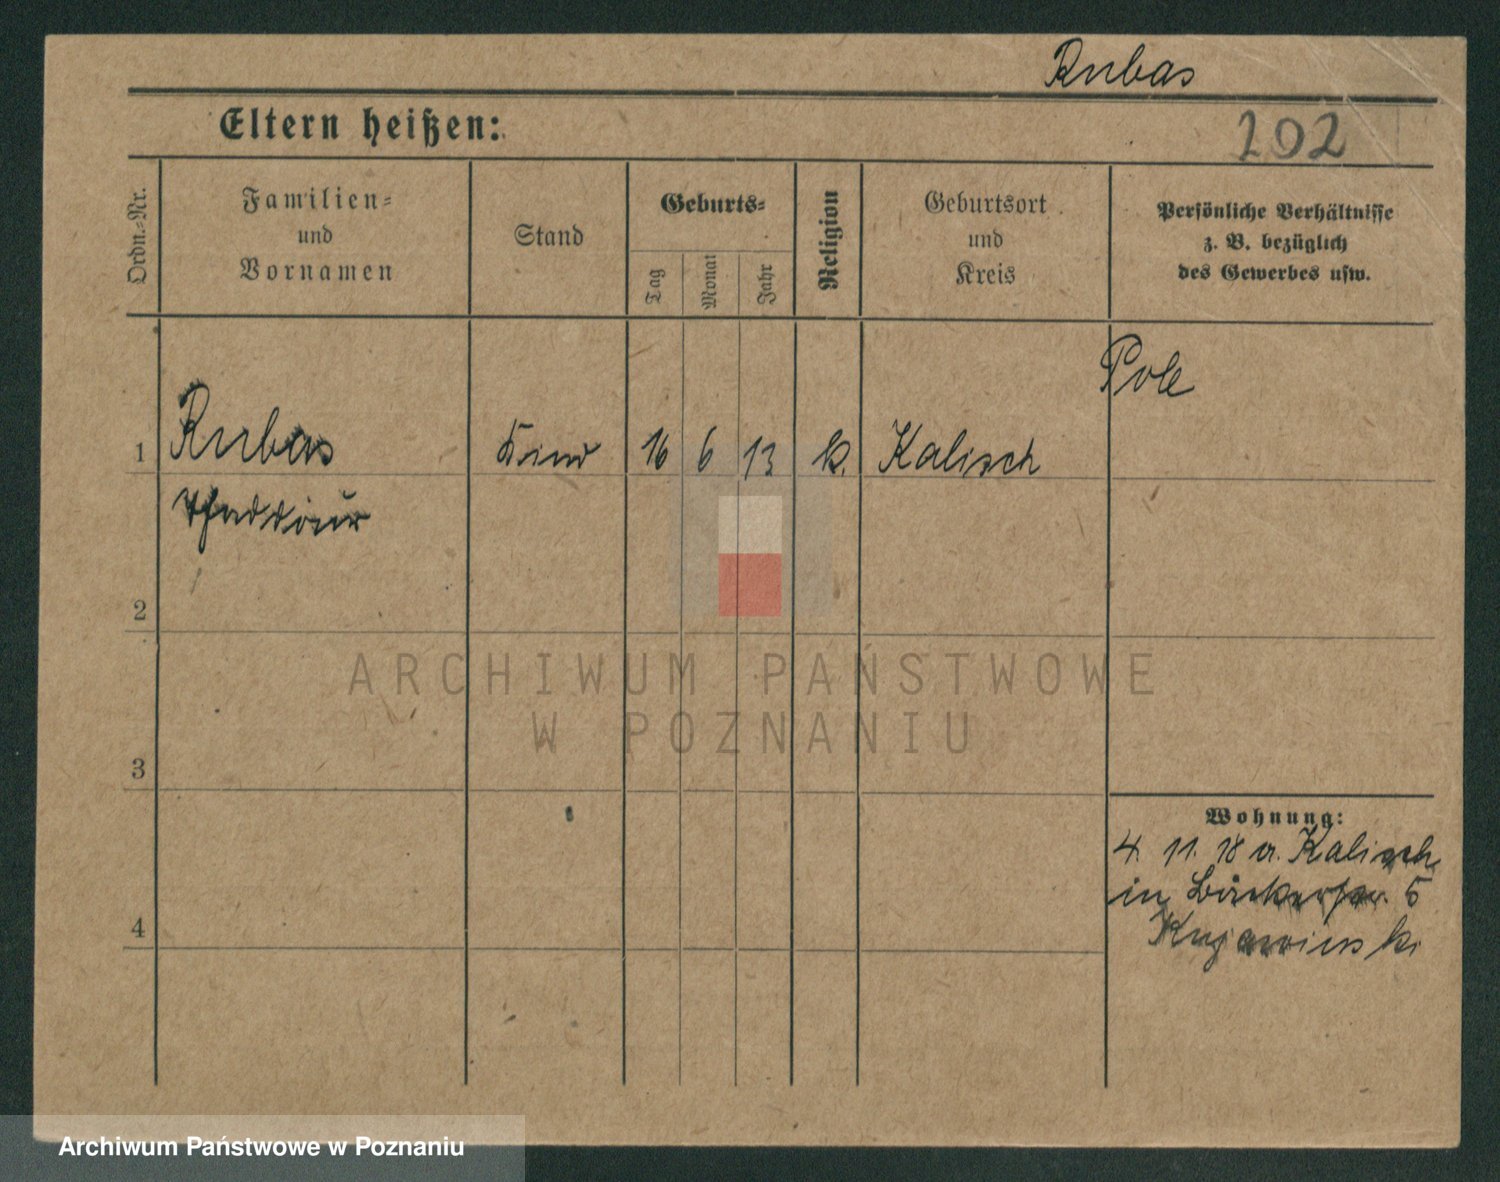 Rubas
Eltern heißen:
202
Ordn.-Nr.
Familien-
und
Vornamen
Stand
Geburts-
Tag
Monat
Jahr
Religion
Geburtsort
und
Kreis
Persönliche Verhältnisse
z. B. bezüglich
des Gewerbes usw.
Pole
1 Rubas Kind 16 6 13 k. Kalisch
2
3
4
Wohnung:
4. 11. 18 a. Kalisch
in Bäckerstr. 5
Kujawinski
ARCHIWUM PAŃSTWOWE
W POZNANIU
Archiwum Państwowe w Poznaniu